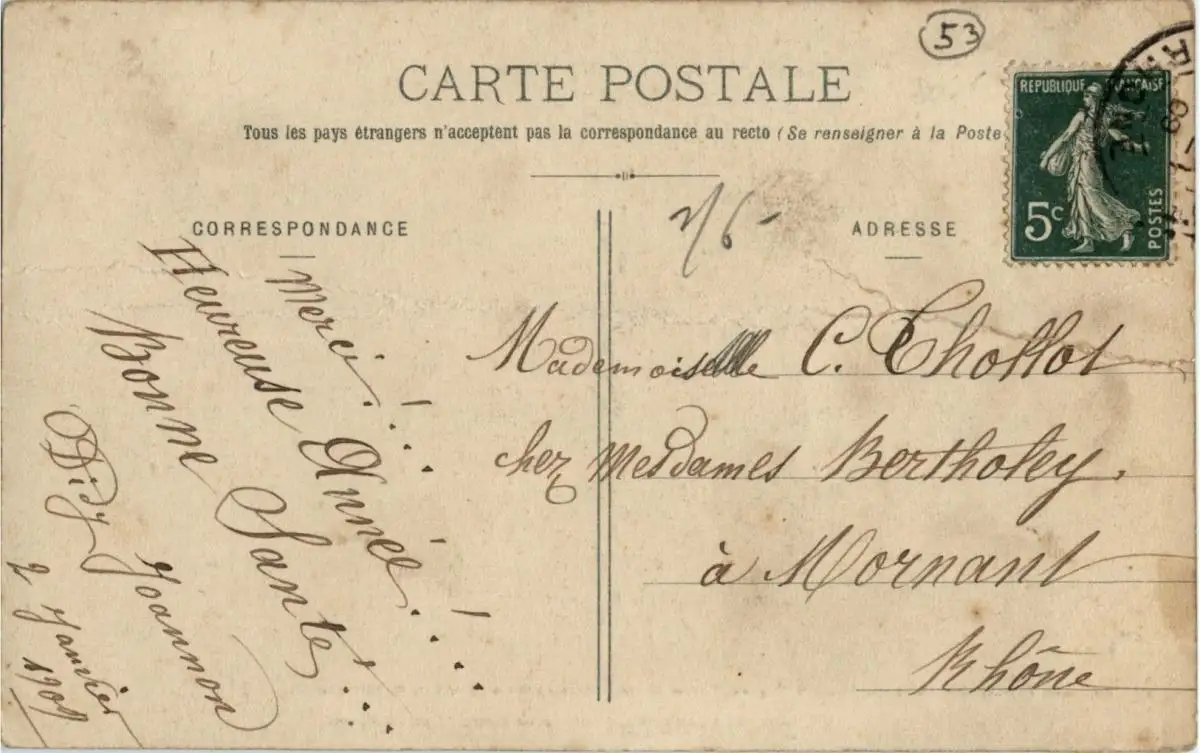 53
CARTE POSTALE
Tous les pays étrangers n'acceptent pas la correspondance au recto (Se renseigner à la Poste
REPUBLIQUE FRANÇAISE
5c
POSTES
CORRESPONDANCE
ADRESSE
Merci!...
Heureuse Année!...
Bonne Santé!...
Didy Joannon
2 Janvier
Mademoiselle C. Chollot
chez Mesdames Bertholey.
à Mornant
Rhône